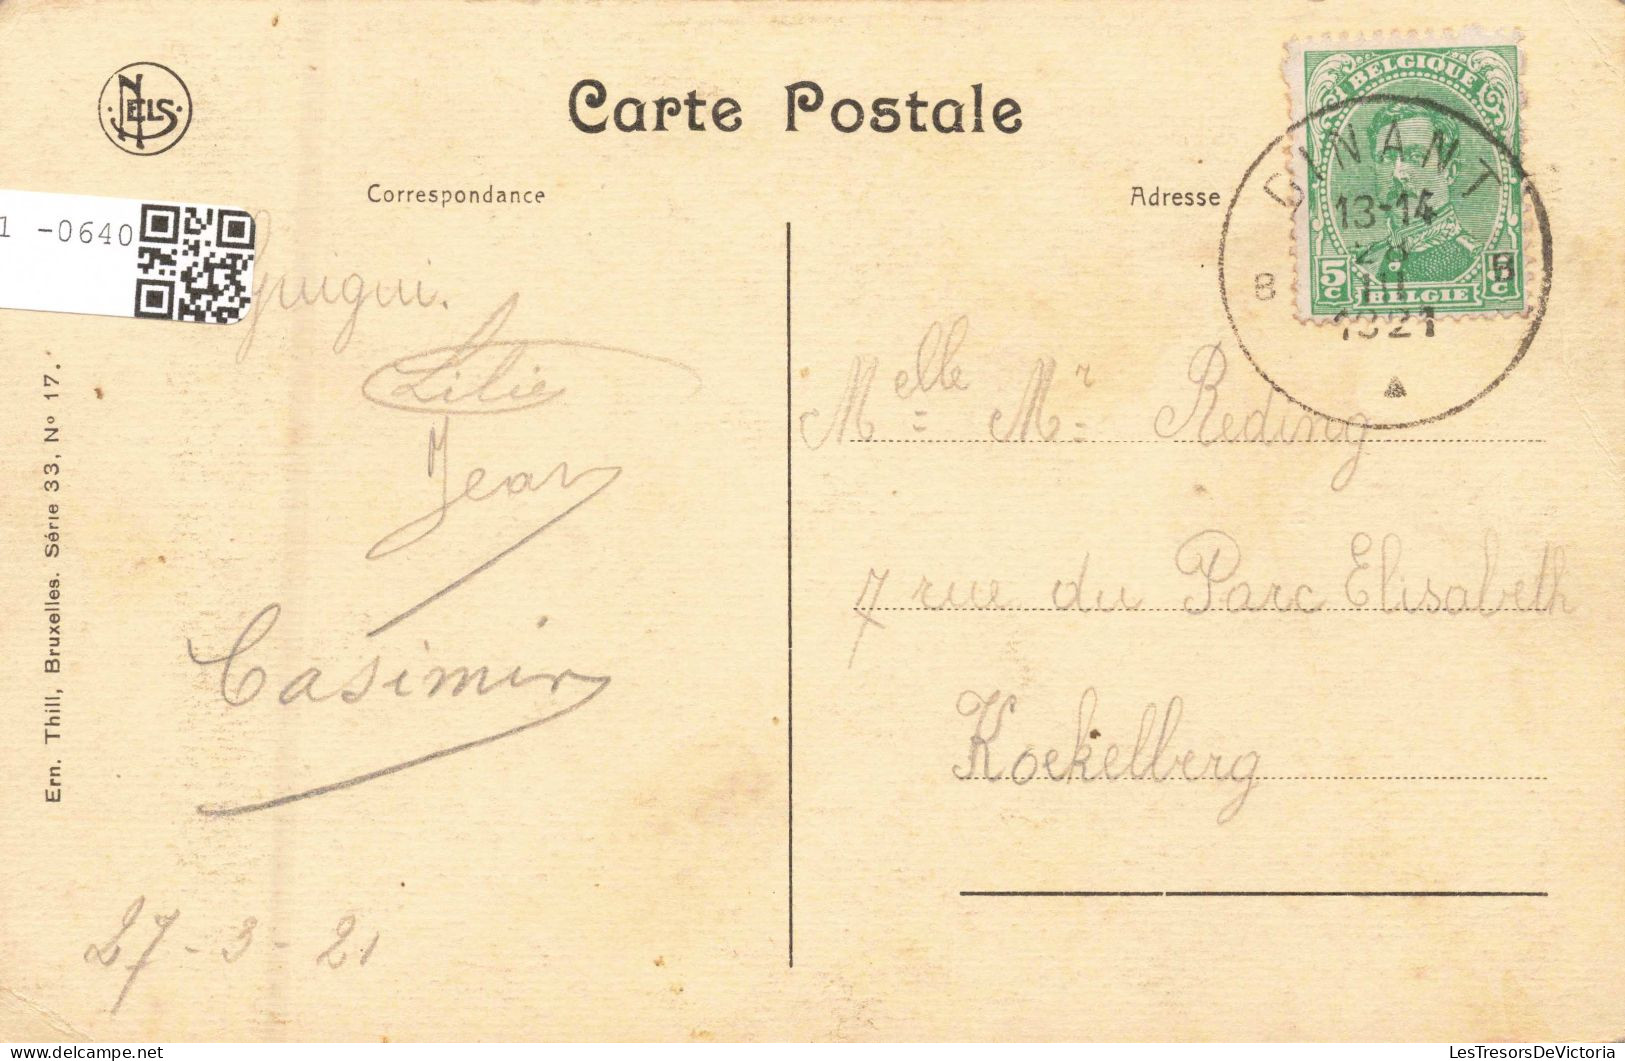 NELS
Carte Postale
Correspondance
Adresse
BELGIQUE
5c
5c
BELGIE
DINANT
13-14
III
1921
B
B
1 -0640
Lilie
Jean
Casimir
27-3-21
Melle Mr Reding
7 rue du Parc Elisabeth
Koekelberg
Ern. Thill, Bruxelles. Série 33, No 17.
LesTresorsDeVictoria